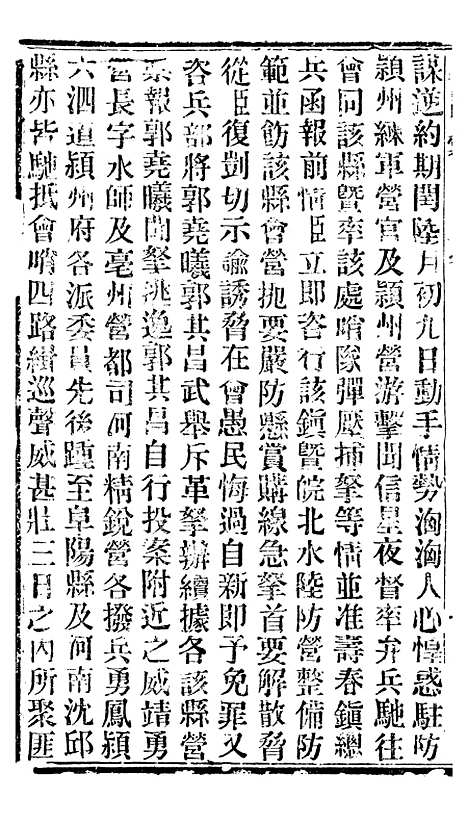 謀逆約期閏陸月初九日動手情勢洶洶人心惶惑駐防
潁州練軍營官及潁州營游擊聞信星夜督率弁兵馳往
會同該縣暨率該處哨隊彈壓捕拏等情並准壽春鎭總
兵函報前情臣立卽咨行該鎭暨皖北水陸防營整備防
範並飭該縣會營拋要嚴防懸賞購線急拏首要解散脅
從臣復剴切示諭誘脅在會愚民悔過自新卽予免罪又
咨兵部將郭堯曦郭其昌武舉斥革拏辦續據各該縣營
禀報郭堯曦聞拏逃逸郭其昌自行投案附近之威靖勇
營長字水師及亳州營都司河南精銳營各撥兵勇鳳潁
六泗道潁州府各派委員先後踵至阜陽縣及河南沈邱
縣亦皆馳抵會哨四路緝巡聲威甚壯三日之內所聚匪